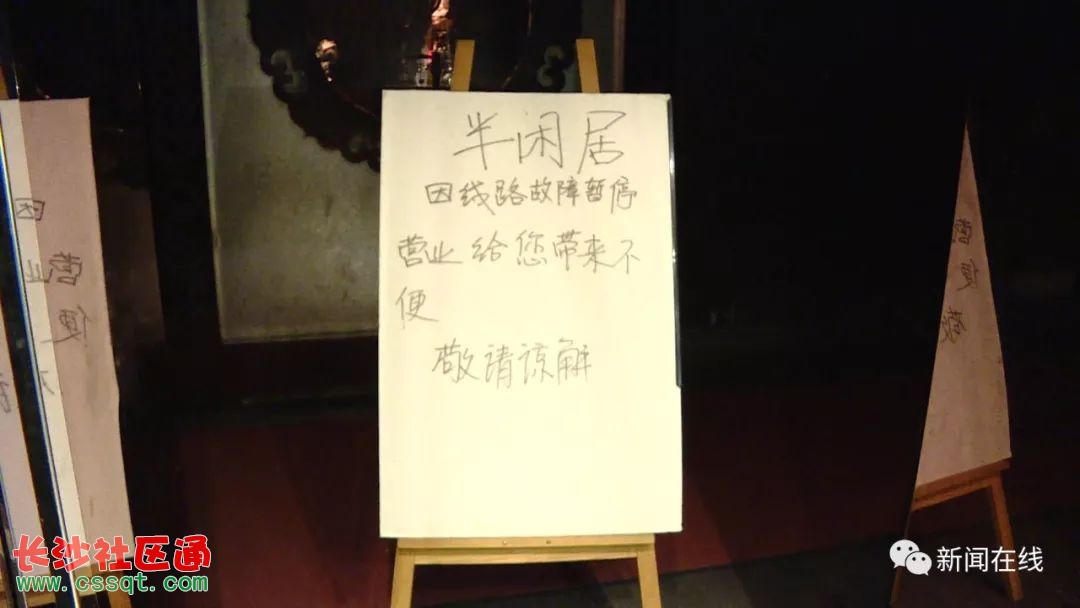 半闲居
因线路故障暂停
营业给您带来不
便
敬请谅解
因
营业
便
营
便
敬
长沙社区通
www.cssqt.com
新闻在线